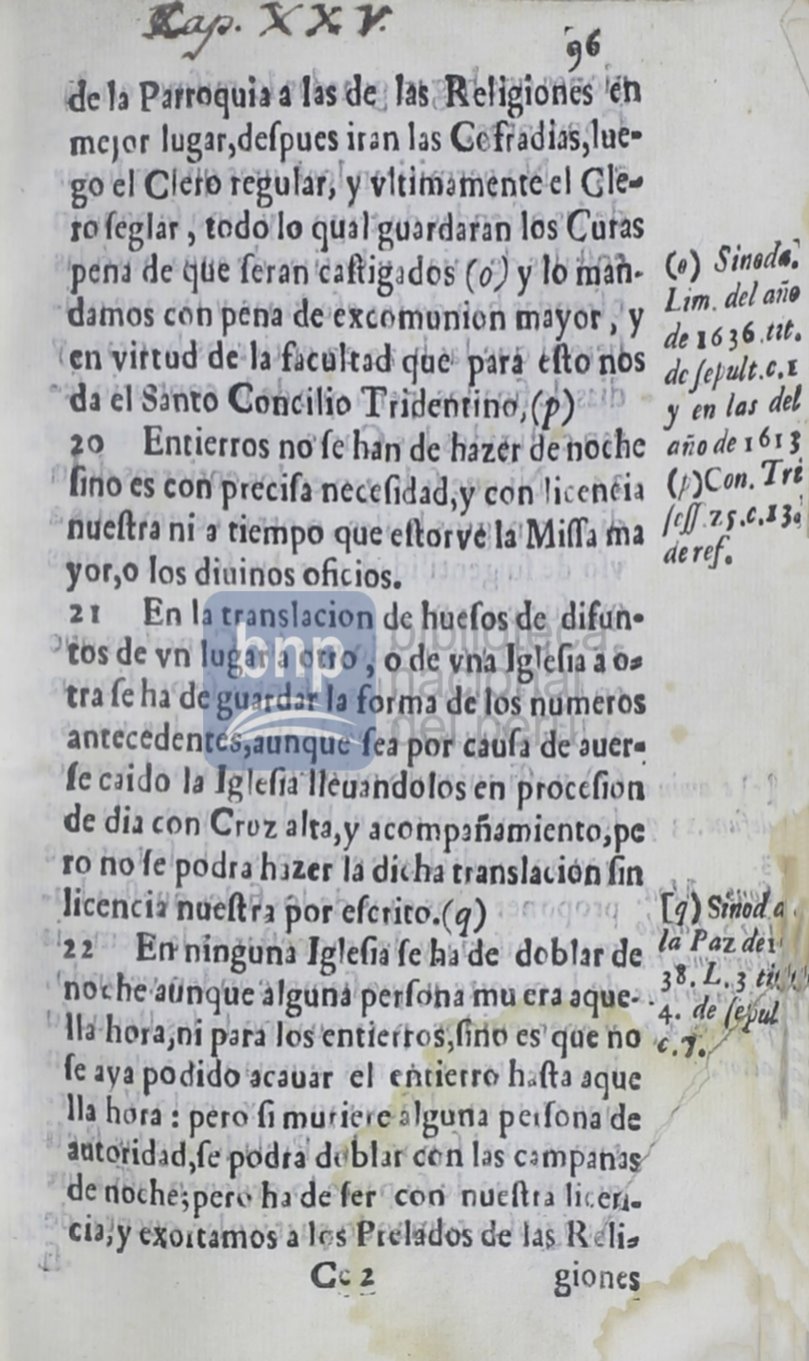 Kap. XXV.
96
de la Parroquia a las de las Religiones en
mejor lugar,deſpues iran las Cofradias,lue-
go el Clero regular, y vltimamente el Cle-
ro ſeglar, todo lo qual guardaran los Curas
pena de que ſeran caſtigados (o) y lo man-
damos con pena de excomunion mayor, y
en virtud de la facultad que para eſto nos
da el Santo Concilio Tridentino,(p)
20 Entierros no ſe han de hazer de noche
ſino es con preciſa neceſidad,y con licencia
nueſtra ni a tiempo que eſtorve la Miſſa ma
yor,o los diuinos oficios.
21 En la translacion de hueſos de difun-
tos de vn lugar a otro, o de vna Igleſia a o-
tra ſe ha de guardar la forma de los numeros
antecedentes,aunque ſea por cauſa de auer-
ſe caido la Igleſia lleuandolos en proceſion
de dia con Cruz alta,y acompañamiento,pe
ro no ſe podra hazer la dicha translacion ſin
licencia nueſtra por eſcrito.(q)
22 En ninguna Igleſia ſe ha de doblar de
noche aunque alguna perſona muera aque-
lla hora,ni para los entierros,ſino es que no
ſe aya podido acauar el entierro haſta aque
lla hora: pero ſi muriere alguna perſona de
autoridad,ſe podra doblar con las campanas
de noche;pero ha de ſer con nueſtra licen-
cia,y exortamos a los Prelados de las Reli-
Cc 2 giones
(o) Sinoda.
Lim. del año
de 1636.tit.
de ſepult.c.1
y en las del
año de 1613
(p)Con. Tri
ſeſſ.25.c.13.
de ref.
[q) Sinod a
la Paz de
38. L. 3
4. de ſepul
c.7.
bnp biblioteca
nacional
del perú